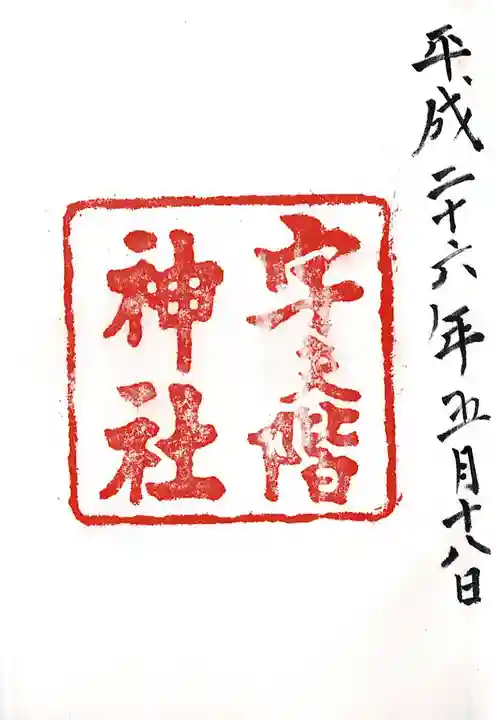 平成二十六年五月十八日
宇夫階
神社